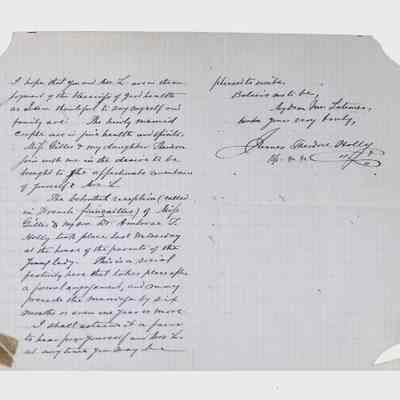 I hope that you and Mrs. L. are in the en-
joyment of the blessings of good health
as I am thankful to say myself and
family are. The newly married
couple are in fine health and spirits.
Miss Gilles & my daughter Theodora
join with me in the desire to be
brought to the affectionate remembrance
of yourself & Mrs. L.
The betrothal reception (called
in French fiançailles) of Miss
Gilles & my son Dr. Ambrose T.
Holly took place last Wednesday
at the house of the parents of the
young lady. This is a social
festivity here that takes place after
a formal engagement, and may
precede the marriage by six
months or even one year or more.
I shall esteem it a favor
to hear from yourself and Mrs. L.
at any time you may be
pleased to write.
Believe me to be,
My dear Mr. Latimer,
Yours very truly,
James Theodore Holly